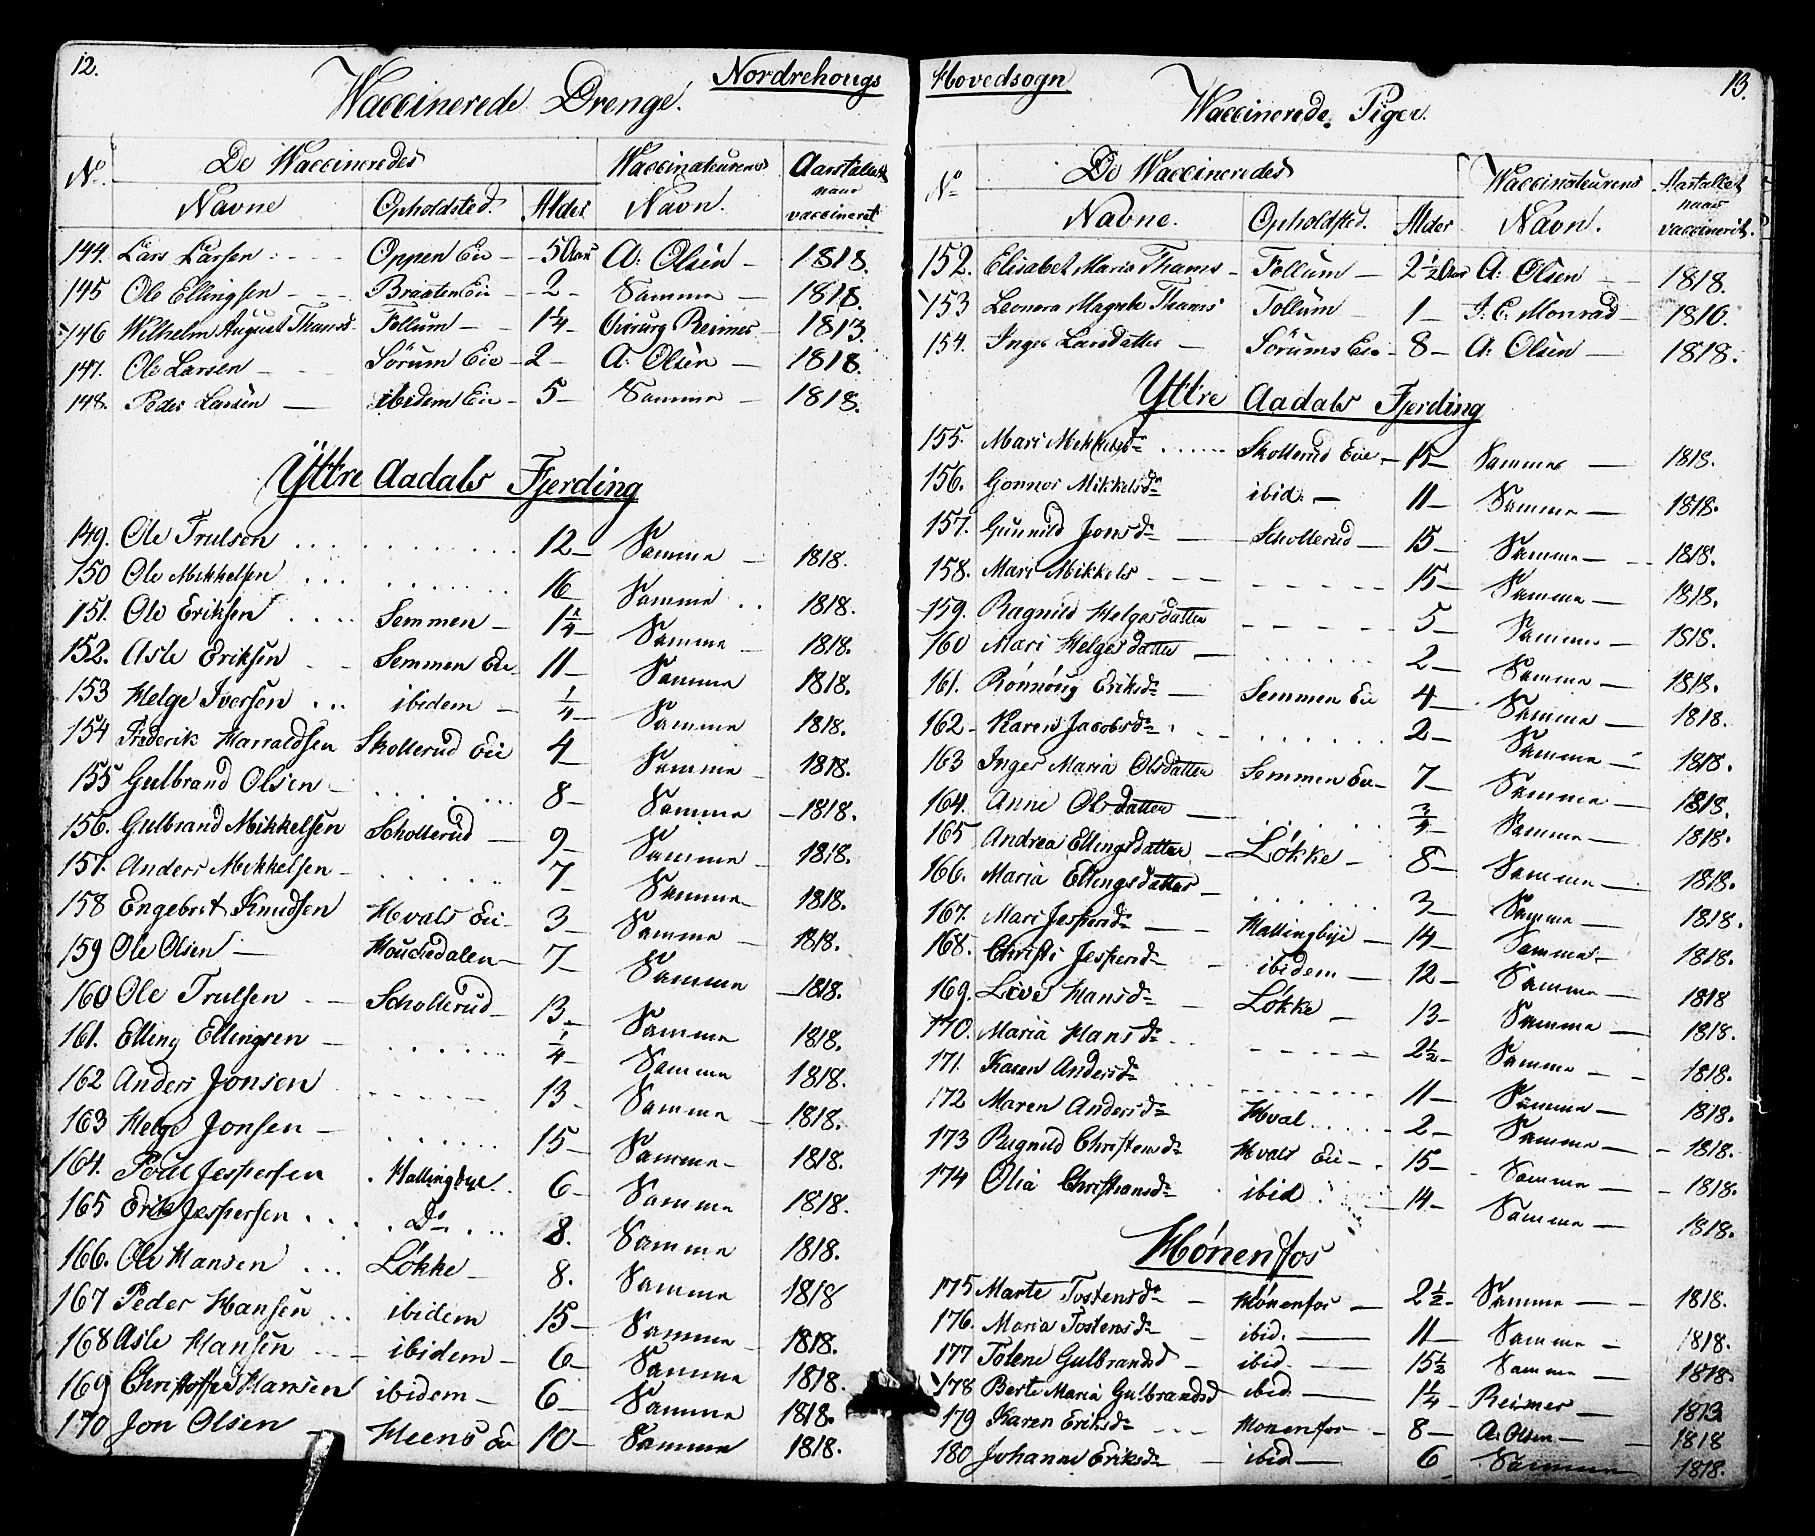 12.
Nordrehougs
Waccinerede Drenge.
No. De Waccineredes Waccinateurens Aarstallet
Navne Opholdsted. Alder Navn. naar vaccineret
144. Lars Larsen Oppen Eie 5 Aar A: Olsen 1818.
145 Ole Ellingsen Braaten Eie 2 Samme 1818.
146 Wilhelm August Thams Follum 1/4 Chirurg Reimer 1813.
147. Ole Larsen Sørum Eie 2 A: Olsen 1818.
148. Peder Larsen ibidem Eie 5 Samme 1818.
Yttre Aadals Fjerding
149. Ole Trulsen 12 Samme 1818.
150 Ole Mikkelsen 16 Samme 1818.
151. Ole Eriksen Semmen 1 1/4 Samme 1818.
152. Asle Eriksen Semmen Eie 11 Samme 1818.
153 Helge Iversen ibidem 1/4 Samme 1818.
154 Frederik Harraldsen Skollerud Eie 4 Samme 1818.
155 Gulbrand Olsen 8 Samme 1818.
156. Gulbrand Mikkelsen Schollerud 9 Samme 1818.
157. Anders Mikkelsen 7 Samme 1818.
158 Engebret Knudsen Hvals Eie 3 Samme 1818.
159 Ole Olsen 7 Samme 1818.
160 Ole Trulsen Schollerud 13 Samme 1818.
161. Elling Ellingsen 1/4 Samme 1818.
162 Anders Jonsen 13 Samme 1818.
163 Helge Jonsen 15 Samme 1818.
164. Poul Jespersen Hallingbye 6 Samme 1818.
165 Erik Jespersen Do 8. Samme 1818.
166. Ole Hansen Løkke 8. Samme 1818
167 Peder Hansen ibidem 15 Samme 1818.
168 Asle Hansen ibidem 6 Samme 1818.
169 Christoffer Hansen ibidem 6 Samme 1818.
170 Jon Olsen Heens Eie 10 Samme 1818.
Hovedsogn
13.
Waccinerede Piger.
No De Waccineredes Waccinateurens Aarstallet
Navne. Opholdsted. Alder Navn. naar vaccineret.
152. Elisabet Maria Thams Follum 2 1/2 Aar A: Olsen 1818.
153 Leonora Magrete Thams Follum 1 J. C. Monrad 1816.
154. Inger Larsdatter Sørums Eie 8 A: Olsen 1818.
Yttre Aadals Fjerding
155. Mari Mikkelsdr Skollerud Eie 15 Samme 1818.
156. Gonnor Mikkelsdr ibid. 11 Samme 1818.
157. Gunnild Jonsdr Schollerud 15 Samme 1818.
158. Mari Mikkels 15 Samme 1818.
159. Ragnild Helgesdatter 5 Samme 1818.
160 Mari Helgesdatter 2 Samme 1818.
161. Rønnoug Eriksdr Semmen Eie 4 Samme 1818.
162 Karen Jacobsdr 2 Samme 1818.
163 Inger Maria Olsdatter Semmen Eie 7 Samme 1818.
164. Anne Olsdatter 3/4 Samme 1818.
165 Andrea Ellingsdatter Løkke 8 Samme 1818.
166. Maria Ellingsdatter 3 Samme 1818.
167. Mari Jespersdr Hallingbye 14 Samme 1818.
168. Christi Jespersdr ibidem 12 Samme 1818
169. Live Hansdr Løkke 13 Samme 1818.
170. Maria Hansdr 2 1/2 Samme 1818.
171. Karen Andersdr 11 Samme 1818.
172 Maren Andersdr Hval 2 Samme 1818.
173 Ragnild Christensdr Hvals Eie 15 Samme 1818.
174 Olia Christiansdr ibid 14 Samme 1818.
Hønenfos
175 Marte Tostensdr Hønenfos 2 1/2 Samme 1818.
176. Maria Tostensdr ibid. 11 Samme 1818.
177 Tolene Gulbrandsd ibid. 15 1/2 Samme 1818.
178 Berte Maria Gulbrandsd ibid. 1/4 Reimer 1813
179 Karen Eriksdr Honenfos 8 A: Olsen 1818
180 Johanne Eriksdr ibid 6 Samme 1818.